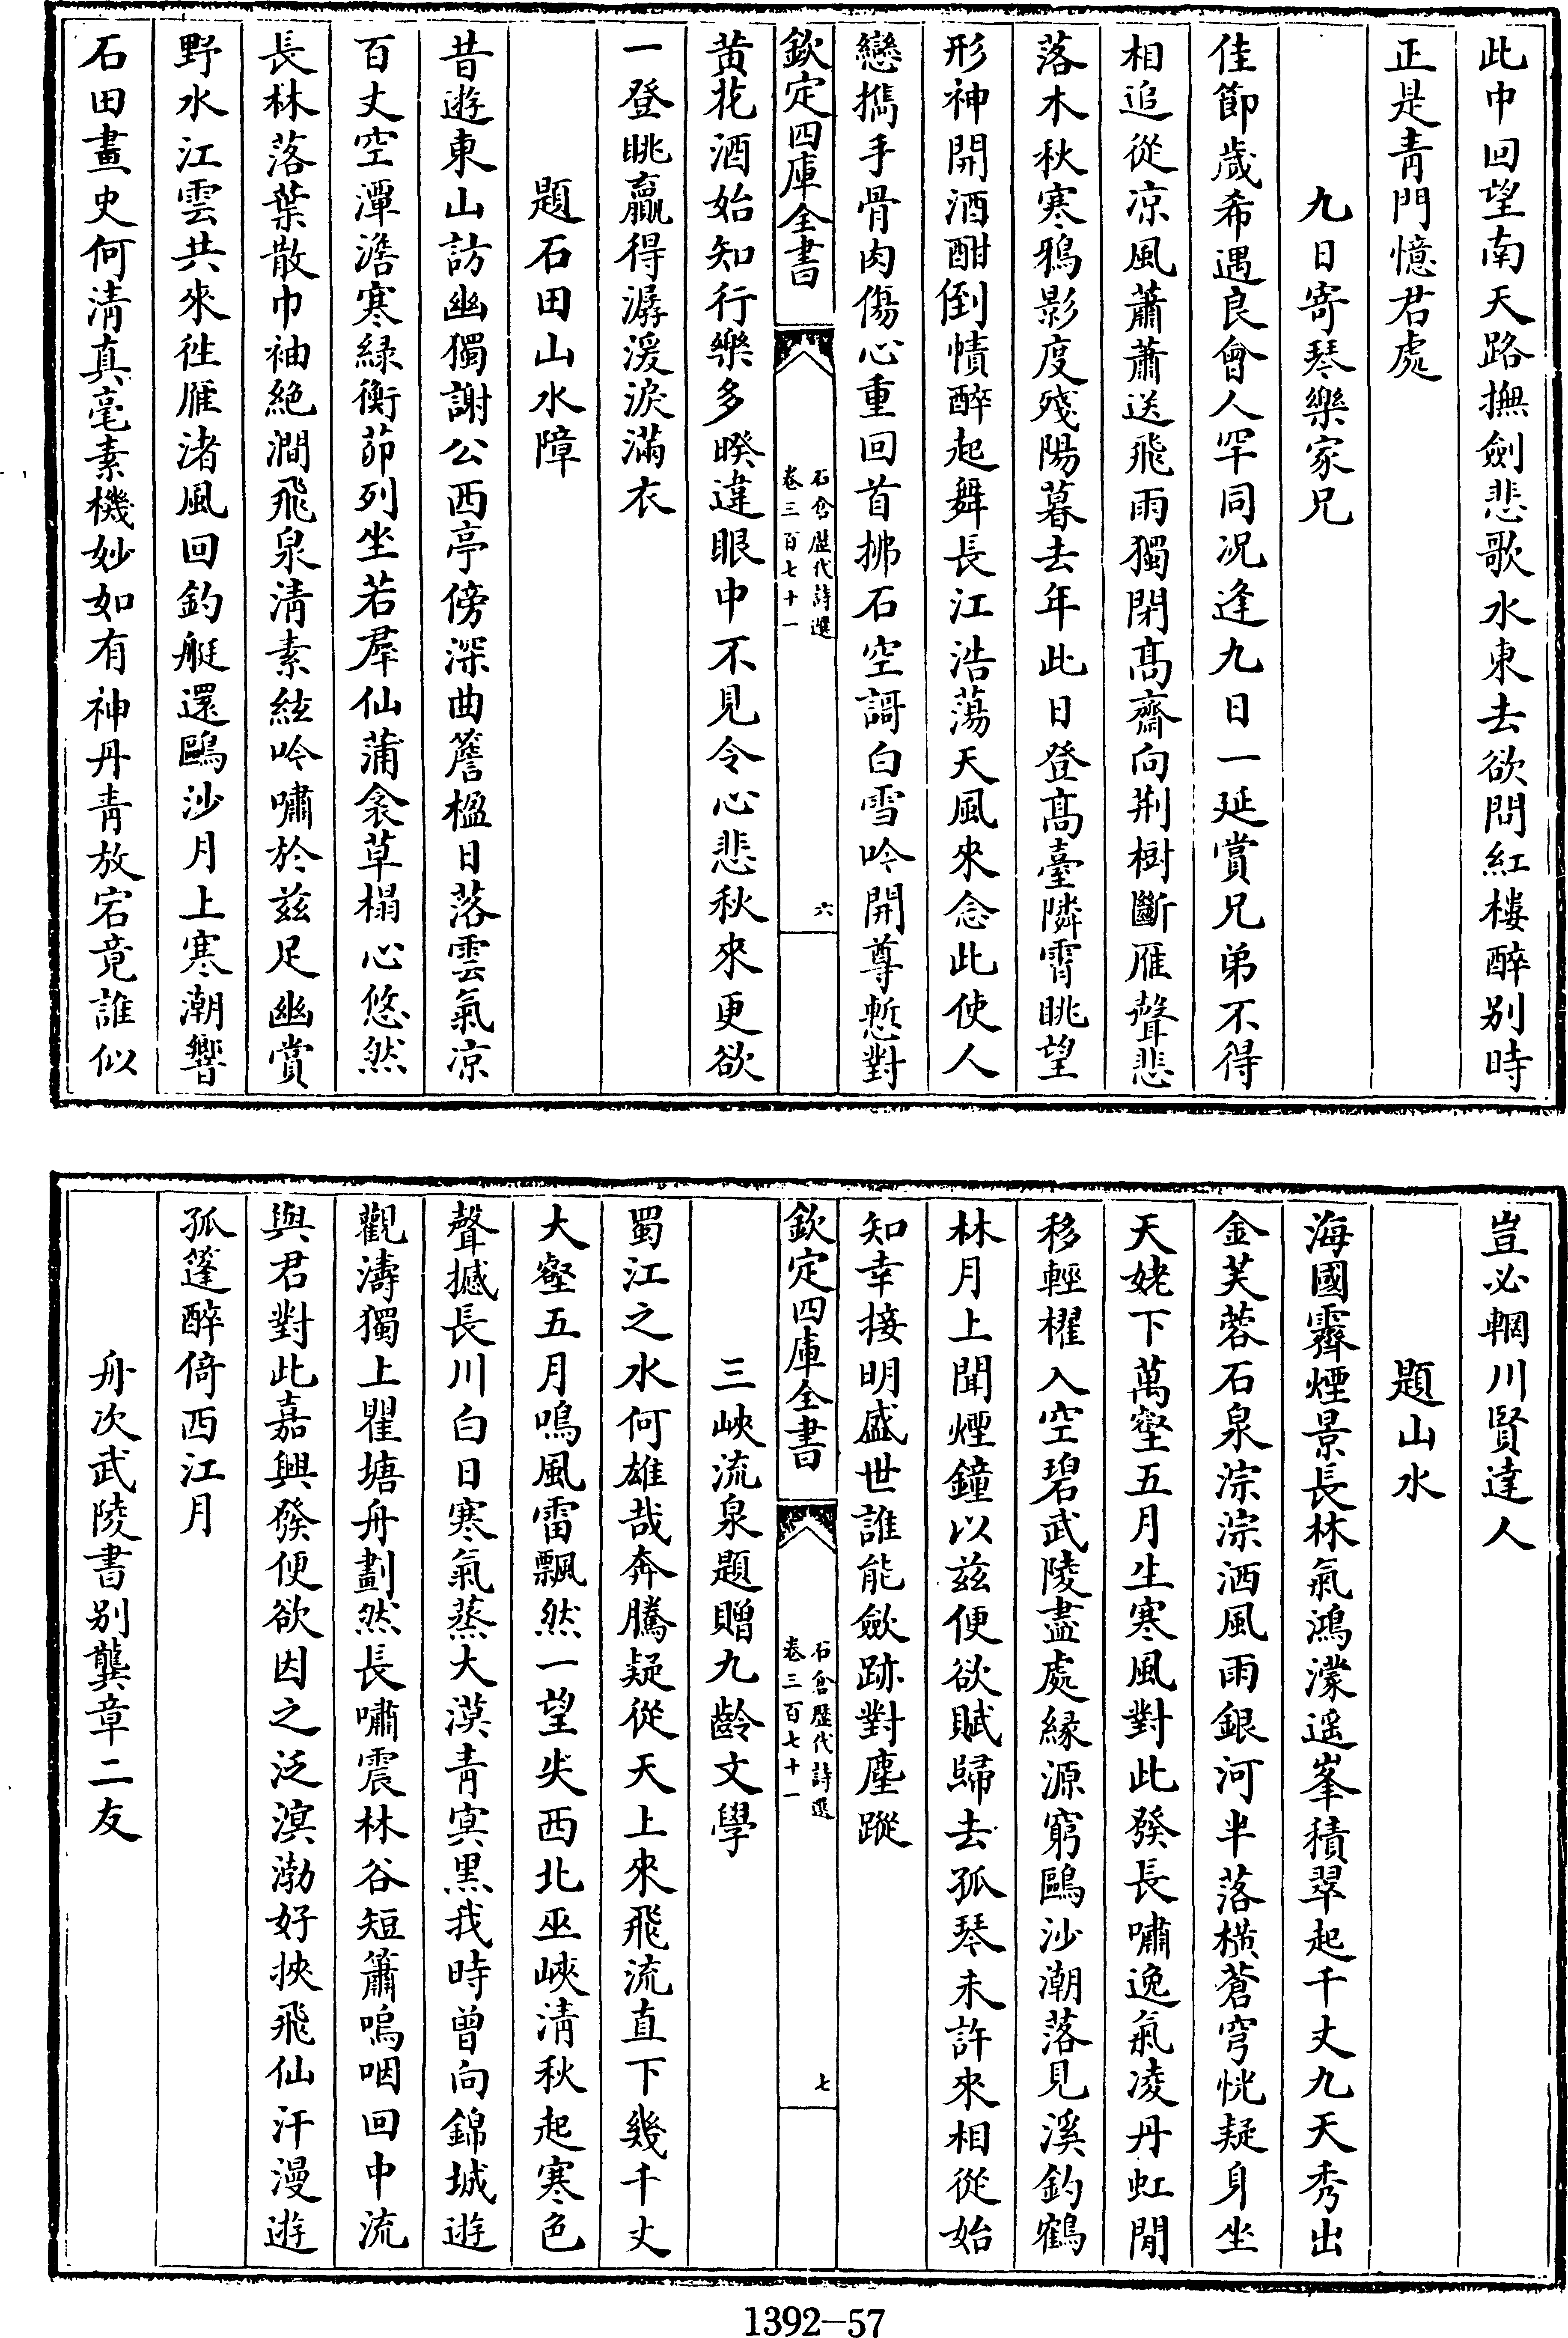 此中回望南天路撫劍悲歌水東去欲問紅樓醉别時
正是青門憶君處
九日寄琴樂家兄
佳節歲希遇良會人罕同况逢九日一延賞兄弟不得
相追從凉風蕭蕭送飛雨獨閉髙齋向荆樹斷雁聲悲
落木秋寒鴉影度殘陽暮去年此日登髙臺隣霄眺望
形神開酒酣倒幘醉起舞長江浩蕩天風來念此使人
戀攜手骨肉傷心重回首拂石空謌白雪吟開尊慙對
欽定四庫全書
石倉歴代詩選
卷三百七十一
六
黄花酒始知行樂多暌違眼中不見令心悲秋來更欲
一登眺贏得潺湲淚滿衣
題石田山水障
昔遊東山訪幽獨謝公西亭傍深曲簷楹日落雲氣凉
百丈空潭澹寒緑衡茆列坐若羣仙蒲衾草榻心悠然
長林落葉散巾袖絶澗飛泉清素絃吟嘯於兹足幽賞
野水江雲共來徃雁渚風回釣艇還鷗沙月上寒潮響
石田畫史何清真毫素機妙如有神丹青放宕竟誰似
豈必輞川賢達人
題山水
海國霽煙景長林氣鴻濛遥峯積翠起千丈九天秀出
金芙蓉石泉淙淙洒風雨銀河半落横蒼穹恍疑身坐
天姥下萬壑五月生寒風對此發長嘯逸氣凌丹虹閒
移輕櫂入空碧武陵盡處緣源窮鷗沙潮落見溪釣鶴
林月上聞煙鐘以兹便欲賦歸去孤琴未許來相從始
知幸接明盛世誰能歛跡對塵蹤
欽定四庫全書
石倉歴代詩選
卷三百七十一
七
三峽流泉題贈九齡文學
蜀江之水何雄哉奔騰疑從天上來飛流直下幾千丈
大壑五月鳴風雷飄然一望失西北巫峽清秋起寒色
聲撼長川白日寒氣蒸大漠青㝠黑我時曾向錦城遊
觀濤獨上瞿塘舟劃然長嘯震林谷短簫嗚咽回中流
與君對此嘉興發便欲因之泛溟渤好挾飛仙汗漫遊
孤篷醉倚西江月
舟次武陵書别龔章二友
1392-57